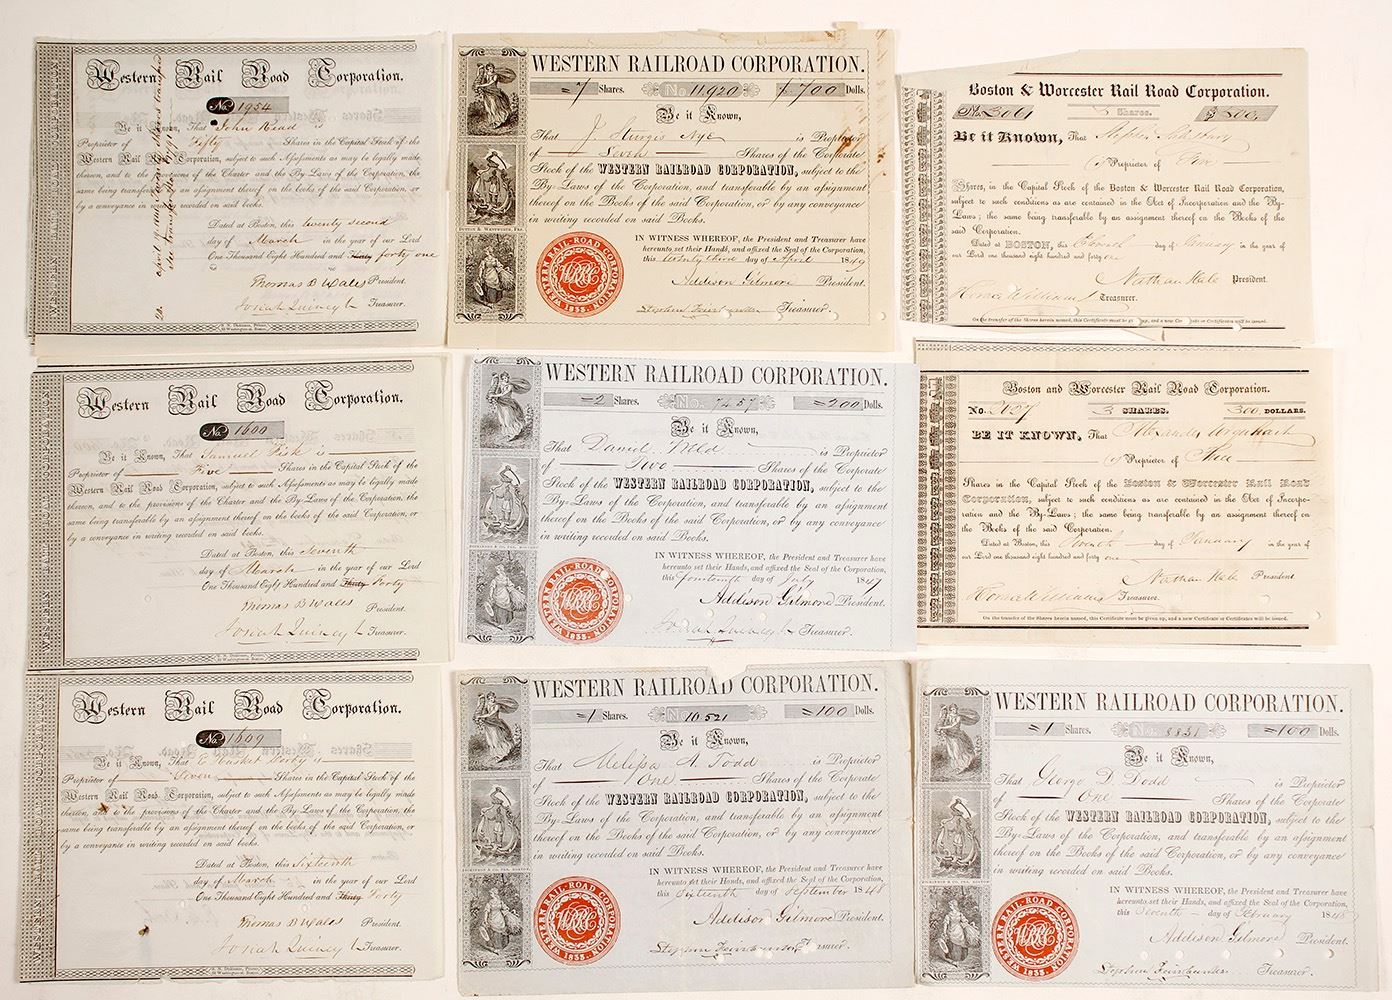 Western Rail Road Corporation.
No. 1954
Be it Known, That John Read is
Proprietor of Fifty Shares in the Capital Stock of the
Western Rail Road Corporation, subject to such Assessments as may be legally made
thereon, and to the provisions of the Charter and the By-Laws of the Corporation, the
same being transferable by an assignment thereof on the books of the Corporation, or
by a conveyance in writing recorded on said books.
Dated at Boston, this twenty second
day of March in the year of our Lord
One Thousand Eight Hundred and Thirty forty one
Thomas B Wales President.
Josiah Quincy Jr Treasurer.
WESTERN RAILROAD CORPORATION.
=7 Shares. No 11,920 $ 700 Dolls.
Be it Known,
That J Sturgis Nye is Proprietor
of Seven Shares of the Corporate
Stock of the WESTERN RAILROAD CORPORATION, subject to the
By-Laws of the Corporation, and transferable by an assignment
thereof on the Books of the Corporation, or by any conveyance
in writing recorded on said Books.
IN WITNESS WHEREOF, the President and Treasurer have
hereunto set their Hands, and affixed the Seal of the Corporation,
this twenty third day of April 1849
Addison Gilmore President.
Stephen Fairbanks Treasurer.
WESTERN RAIL-ROAD CORPORATION
WRRC
1833.
Boston & Worcester Rail Road Corporation.
Shares.
Be it Known, That
Proprietor of Five
Shares, in the Capital Stock of the Boston & Worcester Rail Road Corporation,
subject to such conditions as are contained in the Act of Incorporation and the By-
Laws; the same being transferable by an assignment thereof on the Books of the
said Corporation.
Dated at BOSTON, this day of January in the year of
our Lord one thousand eight hundred and forty one
Nathan Hale President.
Treasurer.
On the transfer of the Shares herein named, this Certificate must be given up, and a new Certificate or Certificates will be issued.
Western Rail Road Corporation.
No. 1600
Be it Known, That Samuel Fisk is
Proprietor of Five Shares in the Capital Stock of the
Western Rail Road Corporation, subject to such Assessments as may be legally made
thereon, and to the provisions of the Charter and the By-Laws of the Corporation, the
same being transferable by an assignment thereof on the books of the said Corporation, or
by a conveyance in writing recorded on said books.
Dated at Boston, this Seventh
day of March in the year of our Lord
One Thousand Eight Hundred and Thirty Forty
Thomas B Wales President.
Josiah Quincy Jr Treasurer.
WESTERN RAILROAD CORPORATION.
=2 Shares. No. 7457 =200 Dolls.
Be it Known,
That Daniel Weld is Proprietor
of Two Shares of the Corporate
Stock of the WESTERN RAILROAD CORPORATION, subject to the
By-Laws of the Corporation, and transferable by an assignment
thereof on the Books of the said Corporation, or by any conveyance
in writing recorded on said Books.
IN WITNESS WHEREOF, the President and Treasurer have
hereunto set their Hands, and affixed the Seal of the Corporation,
this fourteenth day of July 1847
Addison Gilmore President.
Josiah Quincy Jr Treasurer.
WESTERN RAIL-ROAD CORPORATION
WRRC
1833.
Boston and Worcester Rail Road Corporation.
No. 3 SHARES. 300 DOLLARS.
BE IT KNOWN, That Alexander Urquhart
Proprietor of Three
Shares in the Capital Stock of the Boston & Worcester Rail Road
Corporation, subject to such conditions as are contained in the Act of Incorpo-
ration and the By-Laws; the same being transferable by an assignment thereof on
the Books of the said Corporation.
Dated at Boston, this Seventh day of January in the year of
our Lord one thousand eight hundred and forty one
Nathan Hale President
Treasurer.
On the transfer of the Shares herein named, this Certificate must be given up, and a new Certificate or Certificates will be issued.
Western Rail Road Corporation.
No. 1609
Be it Known, That E Hersket Derby is
Proprietor of Seven Shares in the Capital Stock of the
Western Rail Road Corporation, subject to such Assessments as may be legally made
thereon, and to the provisions of the Charter and the By-Laws of the Corporation, the
same being transferable by an assignment thereof on the books of the said Corporation, or
by a conveyance in writing recorded on said books.
Dated at Boston, this Sixteenth
day of March in the year of our Lord
One Thousand Eight Hundred and Thirty Forty
Thomas B Wales President.
Josiah Quincy Jr Treasurer.
WESTERN RAILROAD CORPORATION.
=1 Shares. No 10.521 =100 Dolls.
Be it Known,
That Melissa A. Todd is Proprietor
of One Shares of the Corporate
Stock of the WESTERN RAILROAD CORPORATION, subject to the
By-Laws of the Corporation, and transferable by an assignment
thereof on the Books of the said Corporation, or by any conveyance
in writing recorded on said Books.
IN WITNESS WHEREOF, the President and Treasurer have
hereunto set their Hands, and affixed the Seal of the Corporation,
this Sixteenth day of September 1848
Addison Gilmore President.
Stephen Fairbanks Treasurer.
WESTERN RAIL-ROAD CORPORATION
WRRC
1833.
WESTERN RAILROAD CORPORATION.
=1 Shares. No. 8831 =100 Dolls.
Be it Known,
That George D Dodd is Proprietor
of One Shares of the Corporate
Stock of the WESTERN RAILROAD CORPORATION, subject to the
By-Laws of the Corporation, and transferable by an assignment
thereof on the Books of the said Corporation, or by any conveyance
in writing recorded on said Books.
IN WITNESS WHEREOF, the President and Treasurer have
hereunto set their Hands, and affixed the Seal of the Corporation,
this Seventh day of February 1848
Addison Gilmore President.
Stephen Fairbanks Treasurer.
WESTERN RAIL-ROAD CORPORATION
WRRC
1833.